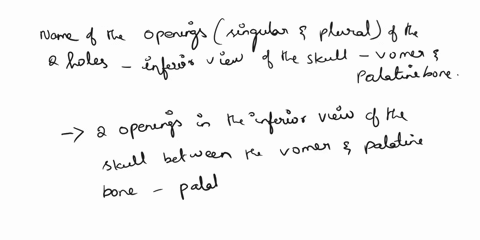 Name of the openings (singular & plural) of the
2 holes - inferior view of the skull - vomer &
Palatine bone.
→ 2 openings in the inferior view of the
skull between the vomer & palatine
bone - palal